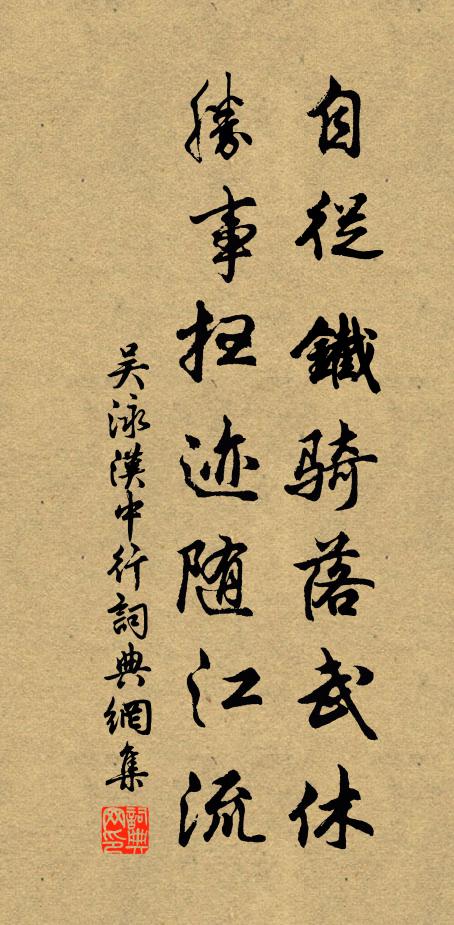 自從鐵騎落武休
勝事扫迹随江流
吴泳漢中行詞典網集
詞典网印